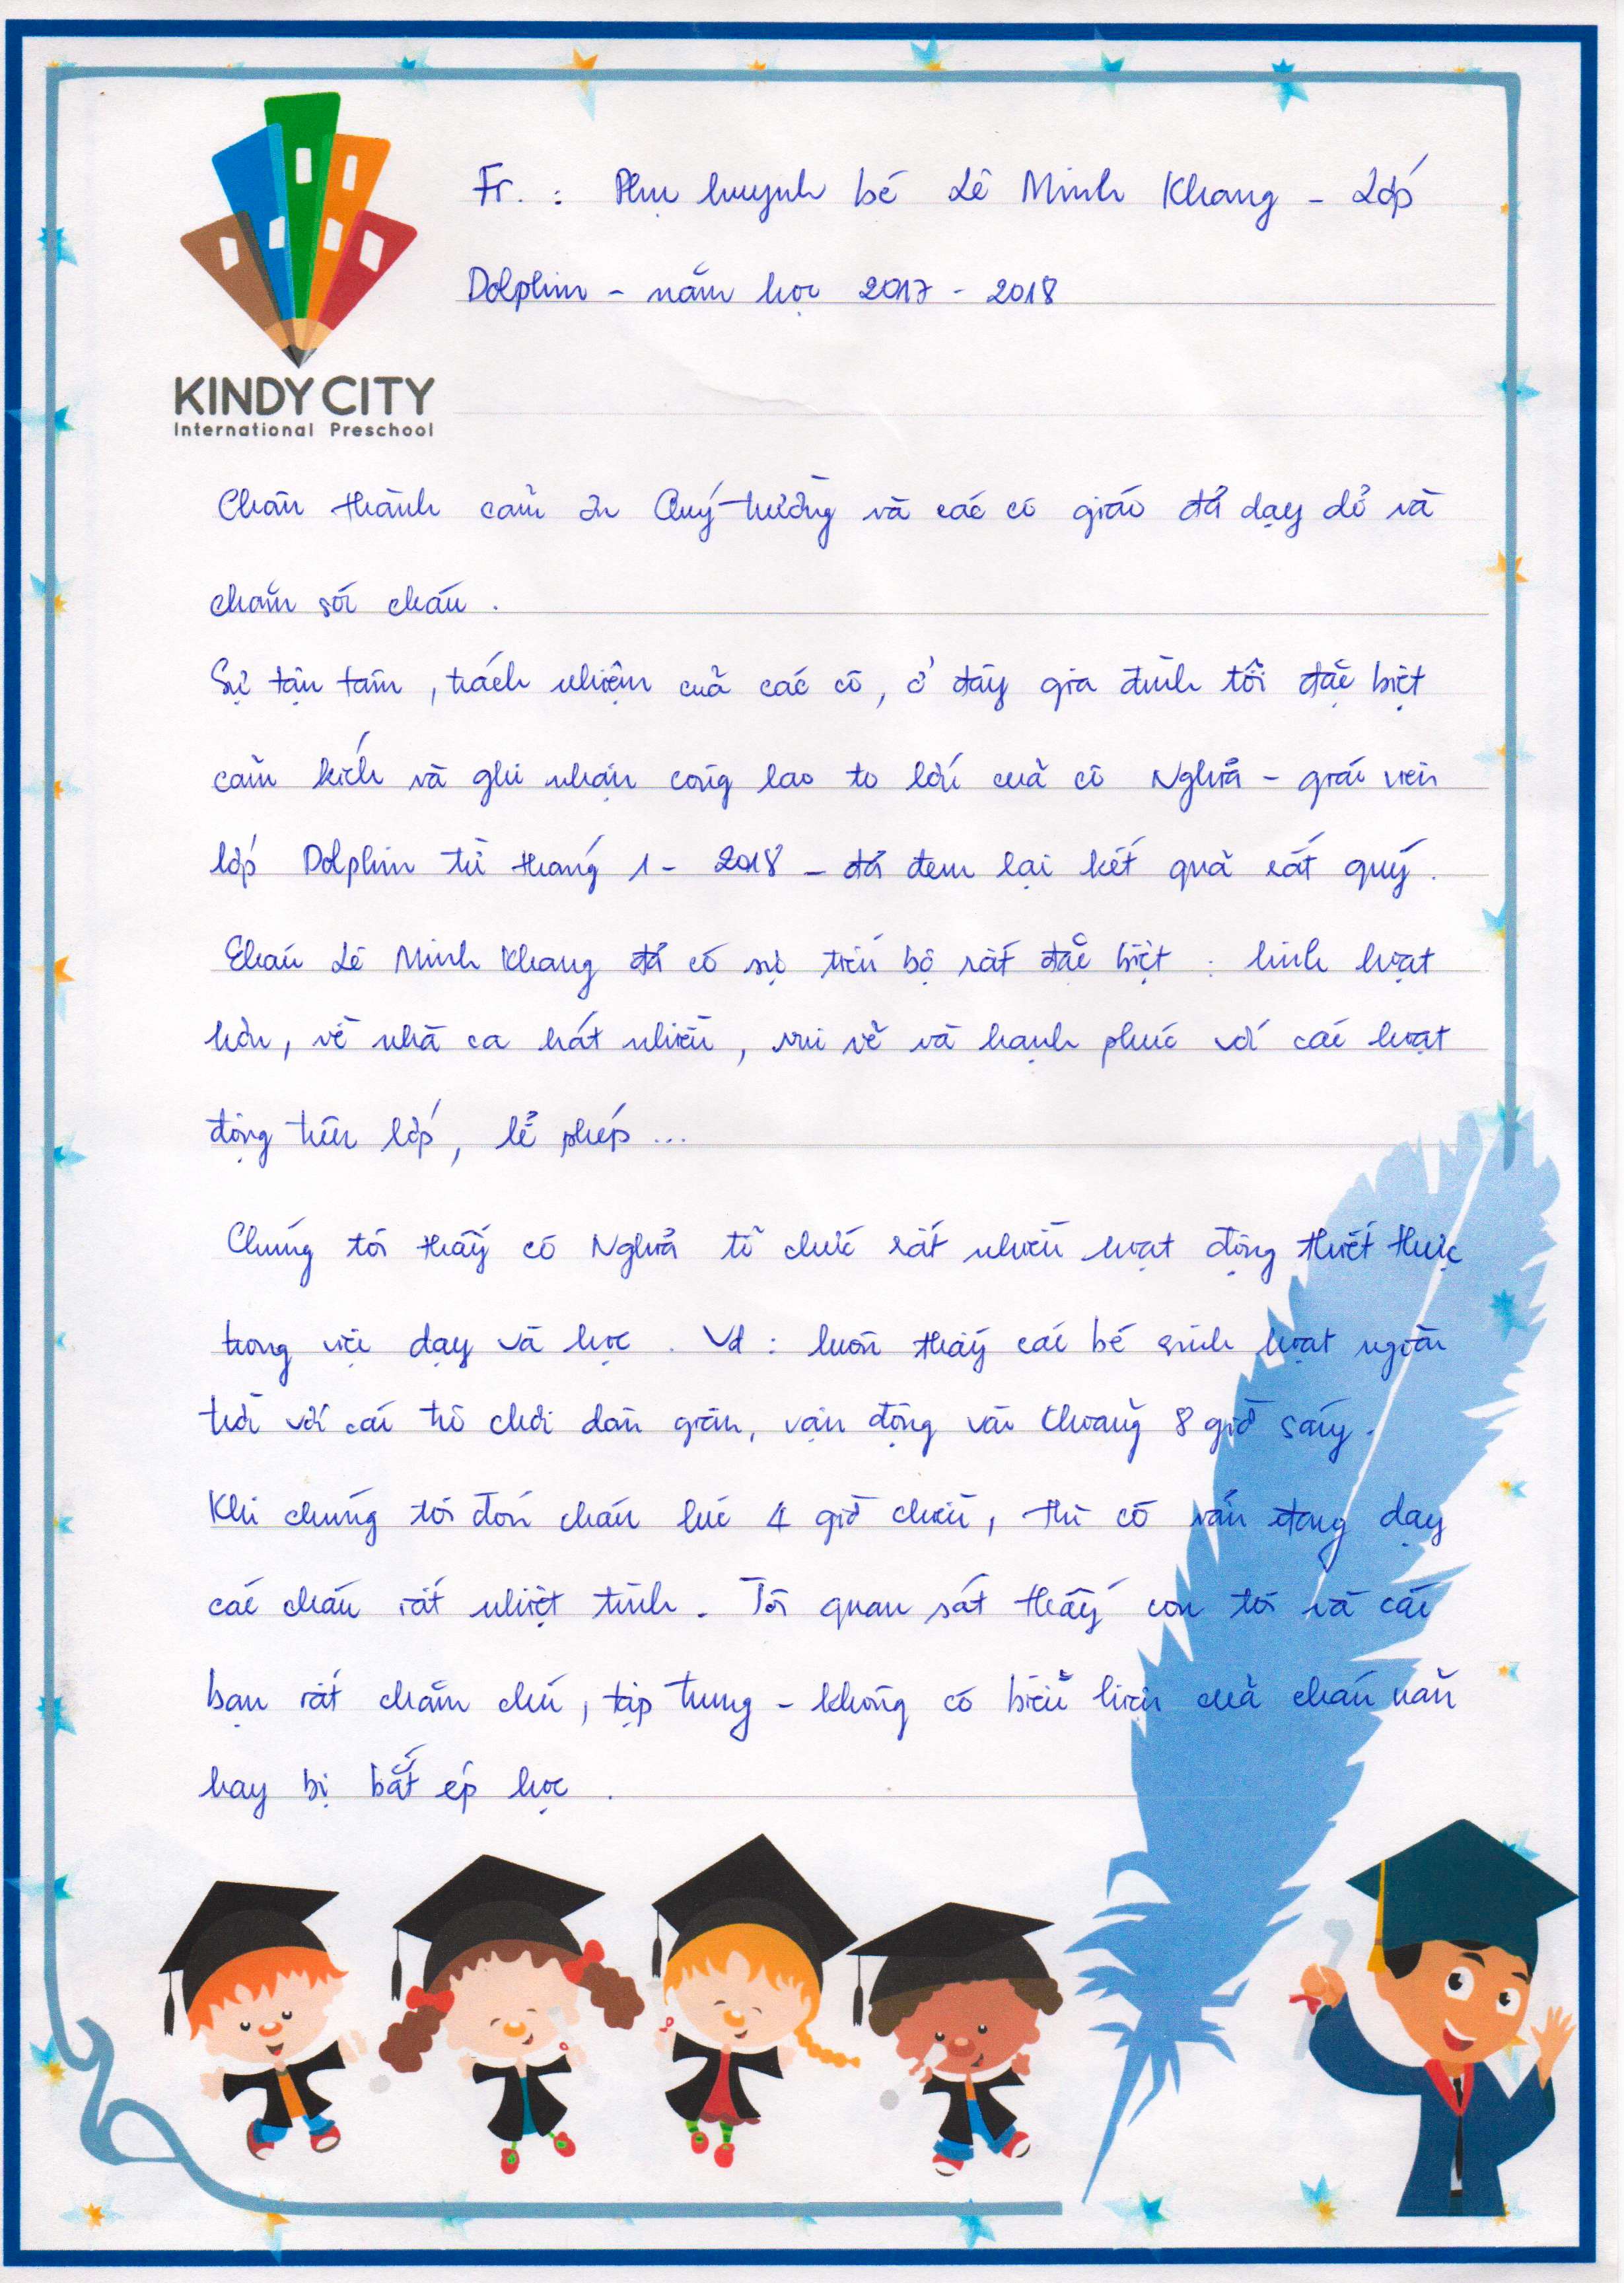 KINDY CITY
International Preschool
Fr. : Phụ huynh bé Lê Minh Khang - Lớp
Dolphin - năm học 2017 - 2018
Chân thành cảm ơn Quý trường và các cô giáo đã dạy dỗ và
chăm sóc cháu .
Sự tận tâm , trách nhiệm của các cô , ở đây gia đình tôi đặc biệt
cảm kích và ghi nhận công lao to lớn của cô Nghĩa - giáo viên
lớp Dolphin từ tháng 1 - 2018 - đã đem lại kết quả rất quý .
Cháu Lê Minh Khang đã có sự tiến bộ rất đặc biệt : linh hoạt
hơn , về nhà ca hát nhiều , vui vẻ và hạnh phúc với các hoạt
động trên lớp , lễ phép ...
Chúng tôi thấy cô Nghĩa tổ chức rất nhiều hoạt động thiết thực
trong việc dạy và học . Vd : luôn thấy các bé sinh hoạt ngoài
trời với các trò chơi dân gian , vận động vào khoảng 8 giờ sáng .
Khi chúng tôi đón cháu lúc 4 giờ chiều , thì cô vẫn đang dạy
các cháu rất nhiệt tình . Tôi quan sát thấy con tôi và các
bạn rất chăm chú , tập trung - không có biểu hiện của chán nản
hay bị bắt ép học .